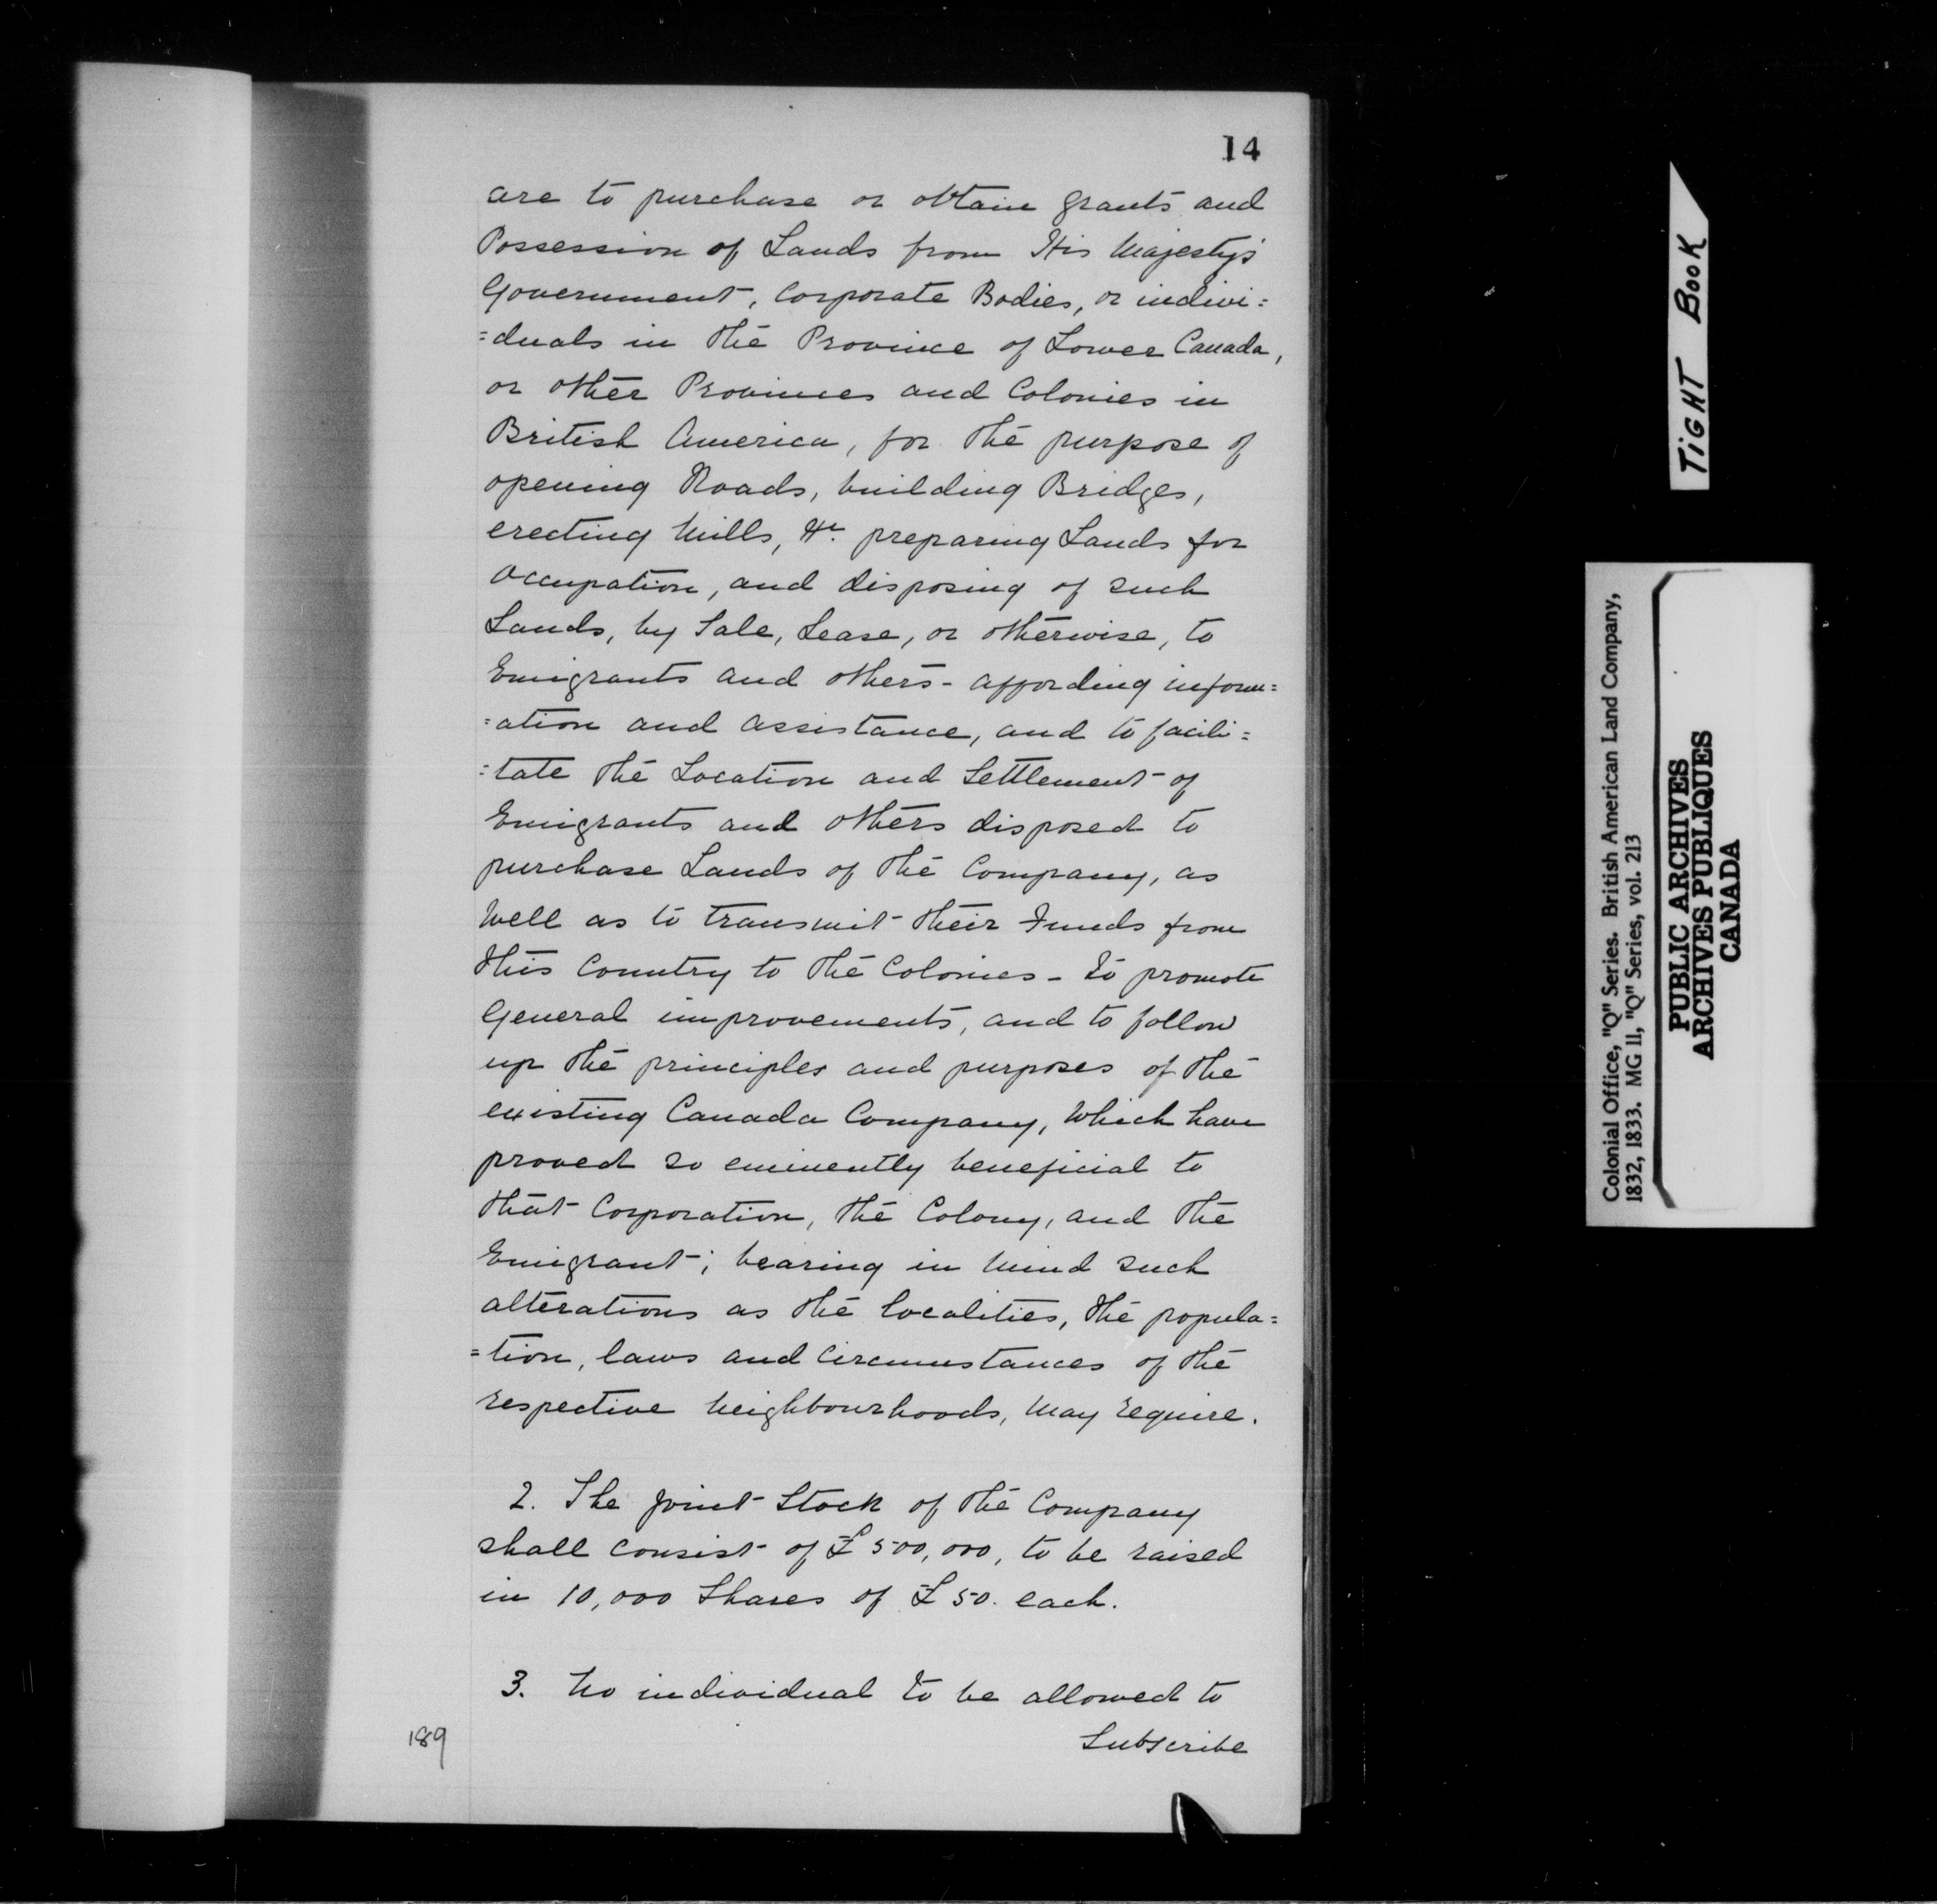 14
are to purchase or obtain grants and
Possession of Lands from His Majesty's
Government, Corporate Bodies, or indivi=
=duals in the Province of Lower Canada,
or other Provinces and Colonies in
British America, for the purpose of
opening Roads, building Bridges,
erecting Mills, &c. preparing Lands for
occupation, and disposing of such
Lands, by Sale, Lease, or otherwise, to
Emigrants and others - affording inform=
=ation and assistance, and to facili=
=tate the Location and Settlement of
Emigrants and others disposed to
purchase Lands of the Company, as
well as to transmit their Funds from
this Country to the Colonies - To promote
General improvements, and to follow
up the principles and purposes of the
existing Canada Company, which have
proved so eminently beneficial to
that Corporation, the Colony, and the
Emigrant; bearing in mind such
alterations as the localities, the popula=
=tion, laws and circumstances of the
respective neighbourhoods, may require.
2. The Joint Stock of the Company
shall consist of £500,000, to be raised
in 10,000 Shares of £50. each.
3. No individual to be allowed to
Subscribe
189
TIGHT BOOK
Colonial Office, "Q" Series. British American Land Company,
1832, 1833. MG 11, "Q" Series, vol. 213
PUBLIC ARCHIVES
ARCHIVES PUBLIQUES
CANADA